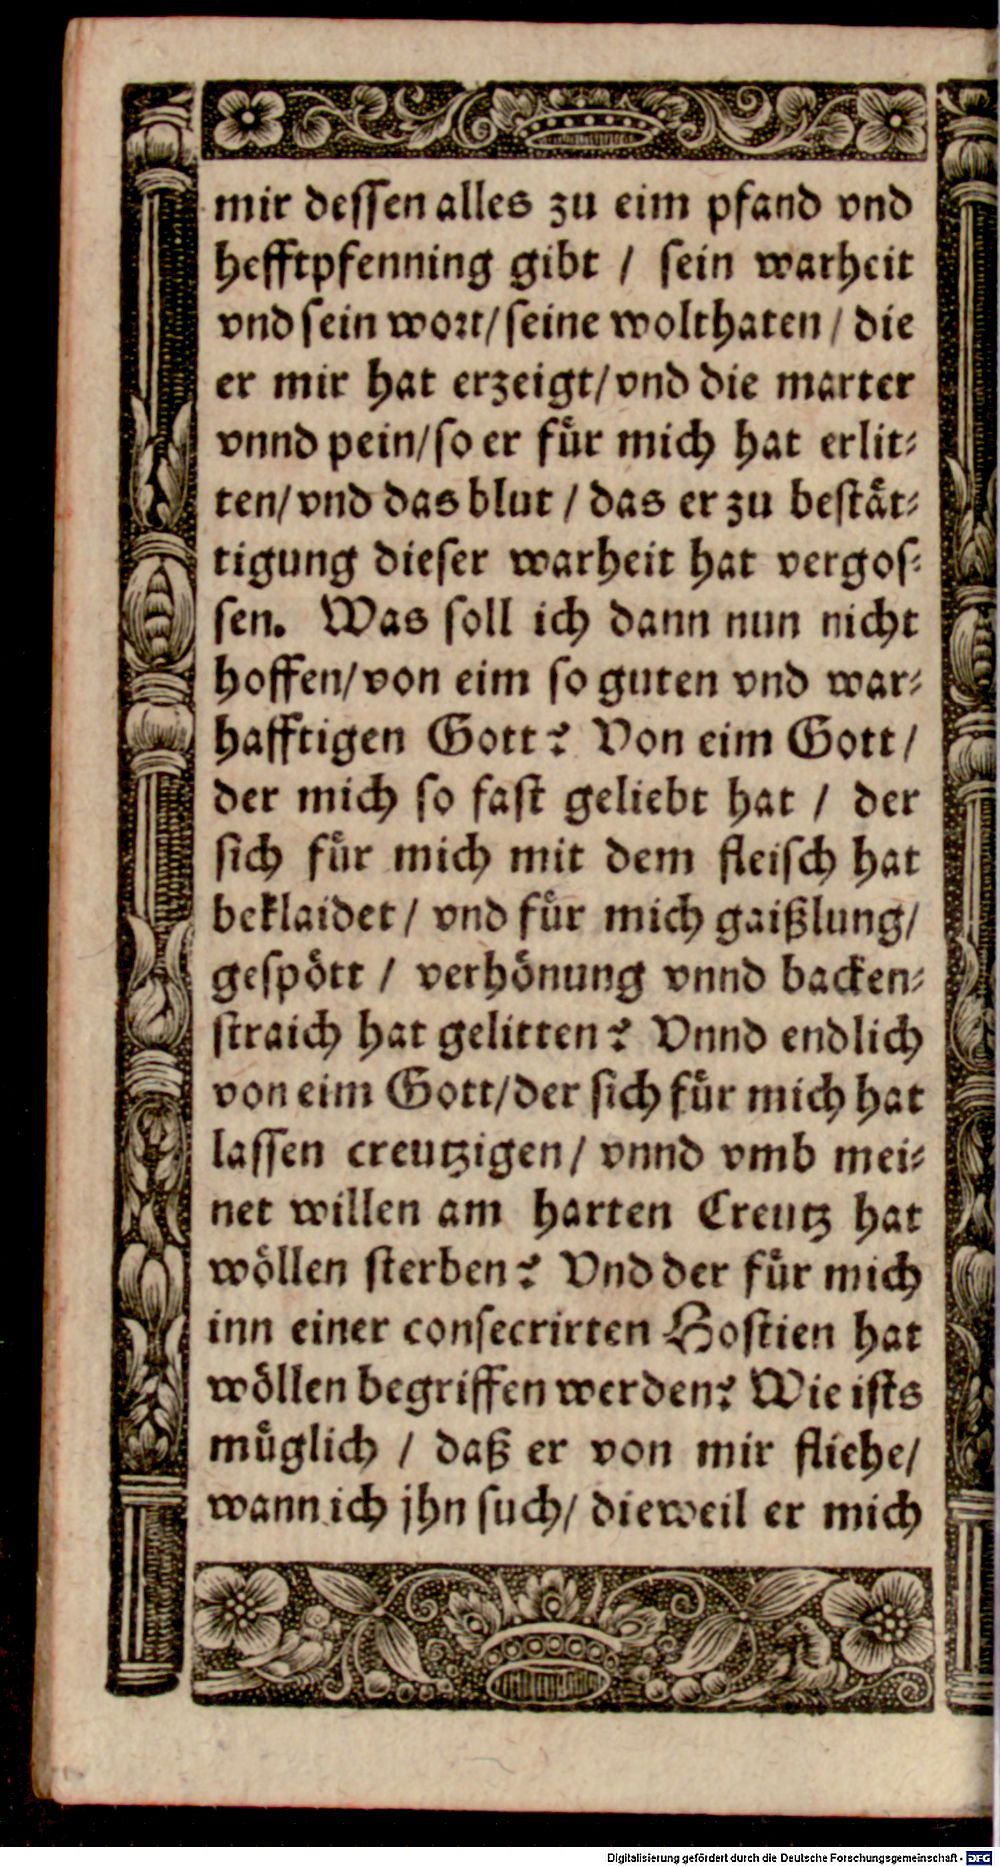 mir dessen alles zu eim pfand vnd
hefftpfenning gibt / sein warheit
vnd sein wort/ seine wolthaten / die
er mir hat erzeigt/ vnd die marter
vnnd pein/ so er fuͤr mich hat erlit⸗
ten/ vnd das blut / das er zu bestaͤt⸗
tigung dieser warheit hat vergos⸗
sen. Was soll ich dann nun nicht
hoffen/ von eim so guten vnd war⸗
hafftigen Gott? Von eim Gott/
der mich so fast geliebt hat / der
sich fuͤr mich mit dem fleisch hat
beklaidet/ vnd fuͤr mich gaißlung/
gespoͤtt / verhoͤnung vnnd backen⸗
straich hat gelitten? Vnnd endlich
von eim Gott/ der sich fuͤr mich hat
lassen creutzigen/ vnnd vmb mei⸗
net willen am harten Creutz hat
woͤllen sterben? Vnd der fuͤr mich
inn einer consecrirten Hostien hat
woͤllen begriffen werden? Wie ists
muͤglich / daß er von mir fliehe/
wann ich jhn such/ dieweil er mich
Digitalisierung gefördert durch die Deutsche Forschungsgemeinschaft - DFG